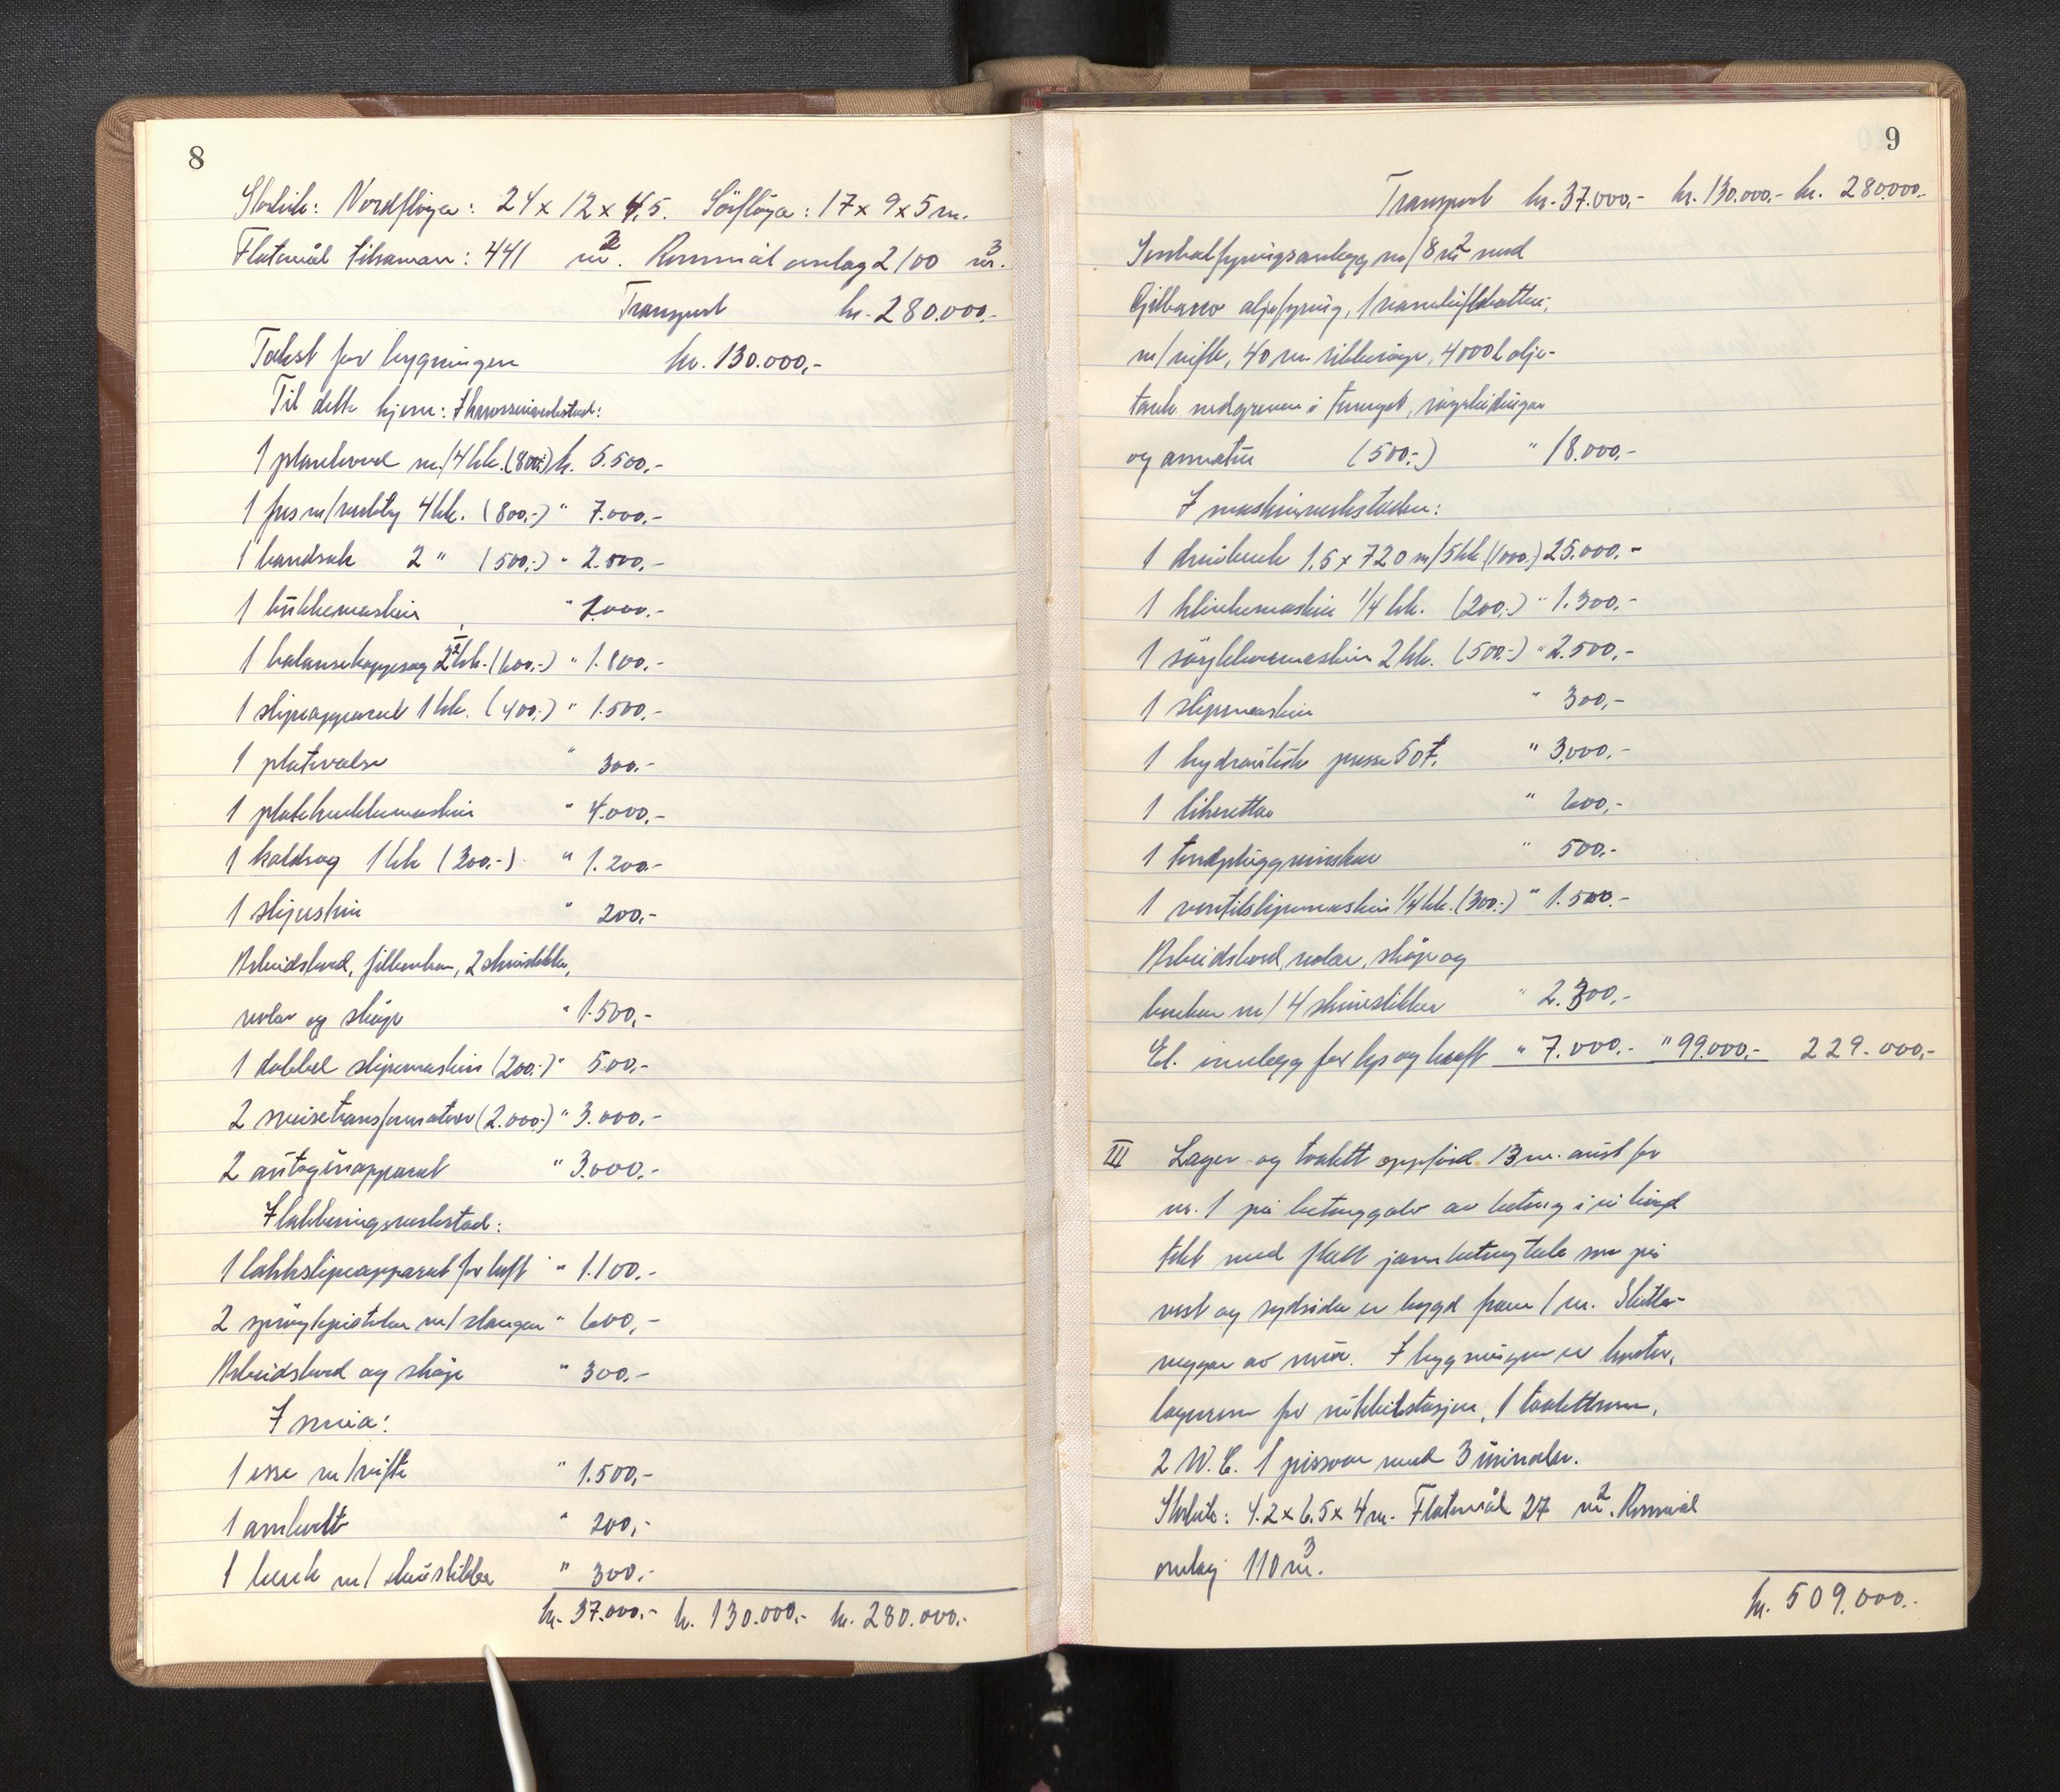 8
Storleik: Nordfløya: 24 x 12 x 4,5. Sörfløya: 17 x 9 x 5 m.
Flatemål tilsaman: 441 m². Rommål omlag 2100 m³.
Transport kr. 280.000,-
Takst for bygningen kr. 130.000,-
Til dette kjem: I karosseriverkstad:
1 planhövel m/4 hk. (800,-) kr. 5.500,-
1 fres m/verkty 4 hk. (800,-) " 7.000,-
1 bandsak 2 " (500,-) " 2.800,-
1 bükkemaskin " 1.000,-
1 balansekappsag 2½ hk. (600,-) " 1.800,-
1 slipeapparat 1 hk. (400,-) " 1.500,-
1 platevalse " 300,-
1 plateknekkemaskin " 4.000,-
1 kaldsag 1 hk (300,-) " 1.200,-
1 slipestein " 200,-
Arbeidsbord, filbenker, 2 skruvstikke,
reolar og skåp " 1.500,-
1 dobbel slipemaskin (200,-) " 500,-
2 sveisetransformatorar (2.000,-) " 3.000,-
2 autogenapparat " 3.000,-
I lakkeringsverkstad:
1 lakkslipeapparat for luft " 1.100,-
2 spröytepistolar m/slanger " 600,-
Arbeidsbord og skåp " 300,-
I smia:
1 esse m/vifte " 1.500,-
1 ambolt " 200,-
1 benk m/skruvstikke " 300,-
kr. 37.000,- kr. 130.000,- kr. 280.000,-
9
Transport kr. 37.000,- kr. 130.000,- kr. 280.000,-
Sentralfyringsanlegg m/8 m² med
oljefyring, 1 varmluft
m/vifte, 40 m ribberöyr, 4000 l olje-
tank nedgraven i tunet, röyrleidingar
og armatur (500,-) " 18.000,-
I maskinverkstaden:
1 dreibenk 1.5 x 720 m/5 hk (1000,-) 25.000,-
1 klinkemaskin 1/4 hk. (200,-) " 1.300,-
1 söyleboremaskin 2 hk. (500,-) " 2.500,-
1 slipemaskin " 300,-
1 hydraulisk presse 50 t. " 3.000,-
1 likerettar " 600,-
1 tendpluggreinskar " 500,-
1 ventilslipemaskin 1/4 hk. (300,-) " 1.500,-
Arbeidsbord, reolar, skåp og
benkar m/4 skruvstikker " 2.300,-
El. innlegg for lys og kraft " 7.000,- " 99.000,- 229.000,-
III Lager og toalett oppförd 13 m. aust for
nr. 1 på betonggolv av betong i ei högd
tekt med flatt jarnbetongtak som på
vest og sydsida er bygd fram 1 m. Skille-
veggar av mur. I bygningen er
lagerrom for stasjon, 1 toalettrom,
2 W.C. 1 pissoar med 3 urinaler.
Storleik: 4.2 x 6.5 x 4 m. Flatemål 27 m². Rommål
omlag 110 m³.
kr. 509.000,-